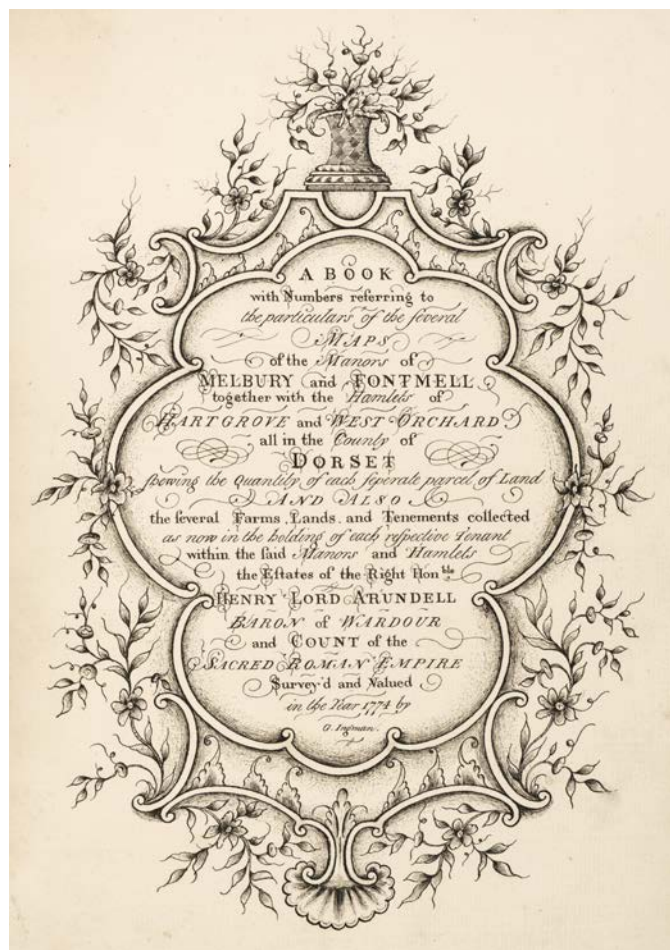 A BOOK
with Numbers referring to
the particulars of the ſeveral
MAPS
of the Manors of
MELBURY and FONTMELL
together with the Hamlets of
HARTGROVE and WEST ORCHARD
all in the County of
DORSET
ſhewing the Quantity of each ſeperate parcel of Land
AND ALSO
the ſeveral Farms, Lands, and Tenements collected
as now in the holding of each reſpective Tenant
within the ſaid Manors and Hamlets
the Eſtates of the Right Honble.
HENRY LORD ARUNDELL
BARON of WARDOUR
and COUNT of the
SACRED ROMAN EMPIRE
Survey'd and Valued
in the Year 1774 by
G. Ingman.